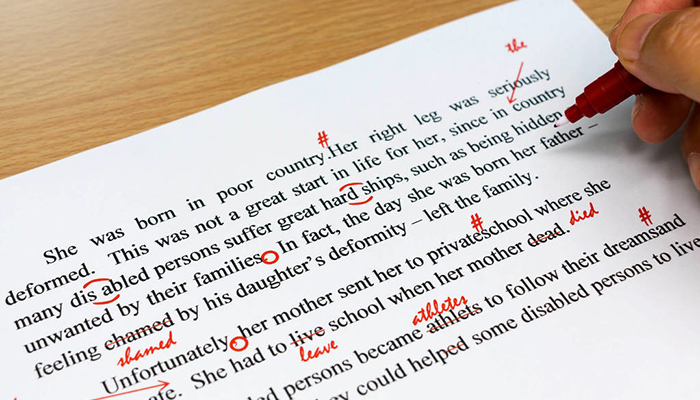 the
#
She was born in poor country.Her right leg was seriously
deformed. This was not a great start in life for her, since in country
many dis abled persons suffer great hard ships, such as being hidden
unwanted by their families. In fact, the day she was born her father –
feeling chamed by his daughter's deformity – left the family.
shamed
# died #
Unfortunately, her mother sent her to privateschool where she
She had to live school when her mother dead.
leave athletes
persons became athlets to follow their dreamsand
could helped some disabled persons to live